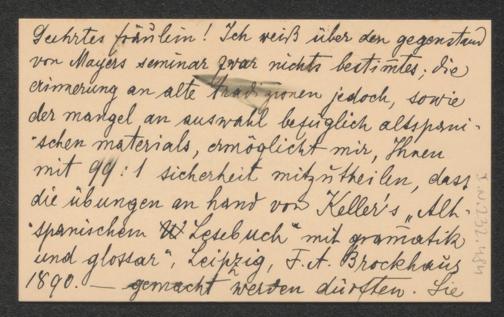 Geehrtes fräulein! Ich weiß über den gegenstand
von Mayers seminar zwar nichts bestimtes; die
erinnerung an alte tradizionen jedoch, sowie
der mangel an auswahl bezüglich altspani-
schen materials, ermöglicht mir, Ihnen
mit 99:1 sicherheit mitzutheilen, dass
die übungen an hand von Keller's „Alt-
spanischem Lesebuch" mit gramatik
und glossar", Leipzig, F. A. Brockhaus
1890. — gemacht werden dürften. Sie